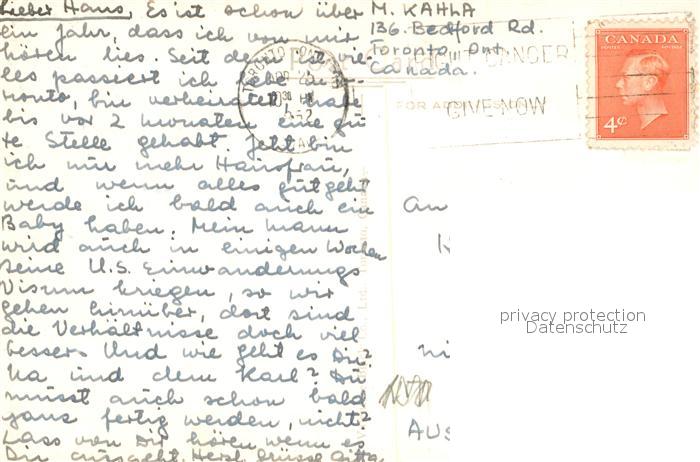 Lieber Hans, Es ist schon über
ein Jahr, dass ich von mir
hören lies. Seit dem ist vie-
les passiert ich lebe in To-
ronto, bin verheiratet, habe
bis vor 2 monaten eine gu
te Stelle gehabt. Jetzt bin
ich nur mehr Hausfrau,
und wenn alles gut geht
werde ich bald auch ein
Baby haben. Mein Mann
wird auch in einigen Wochen
seine U.S. Einwanderungs
Visum kriegen, so wir
gehen hinüber, dort sind
die Verhältnisse doch viel
besser. Und wie geht es Dir?
Na und dem Karl? Du
musst auch schon bald
ganz fertig werden, nicht?
Lass von Dir hören wenn es
Dir ausgeht. Herzl. Grüsse Gitta
M. KAHLA
136. Bedford Rd.
Toronto, Ont.
Canada.
TORONTO ONTARIO
CANCER
GIVE NOW
FOR ADDRESS
CANADA
POSTES POSTAGE
4¢
An
Ni
AUS
privacy protection
Datenschutz